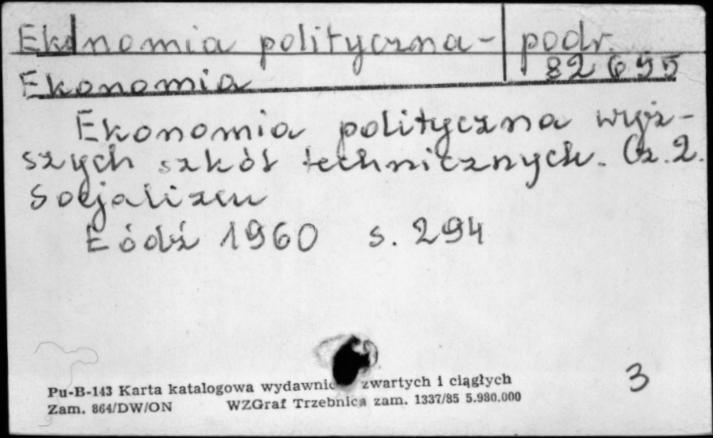 Ekonomia polityczna - podr.
82695
Ekonomia
Ekonomia polityczna wyż-
szych szkół technicznych. Cz. 2.
Socjalizm
Łódź 1960 s. 294
3
Pu-B-143 Karta katalogowa wydawnic zwartych i ciągłych
Zam. 864/DW/ON WZGraf Trzebnica zam. 1337/85 5.980.000